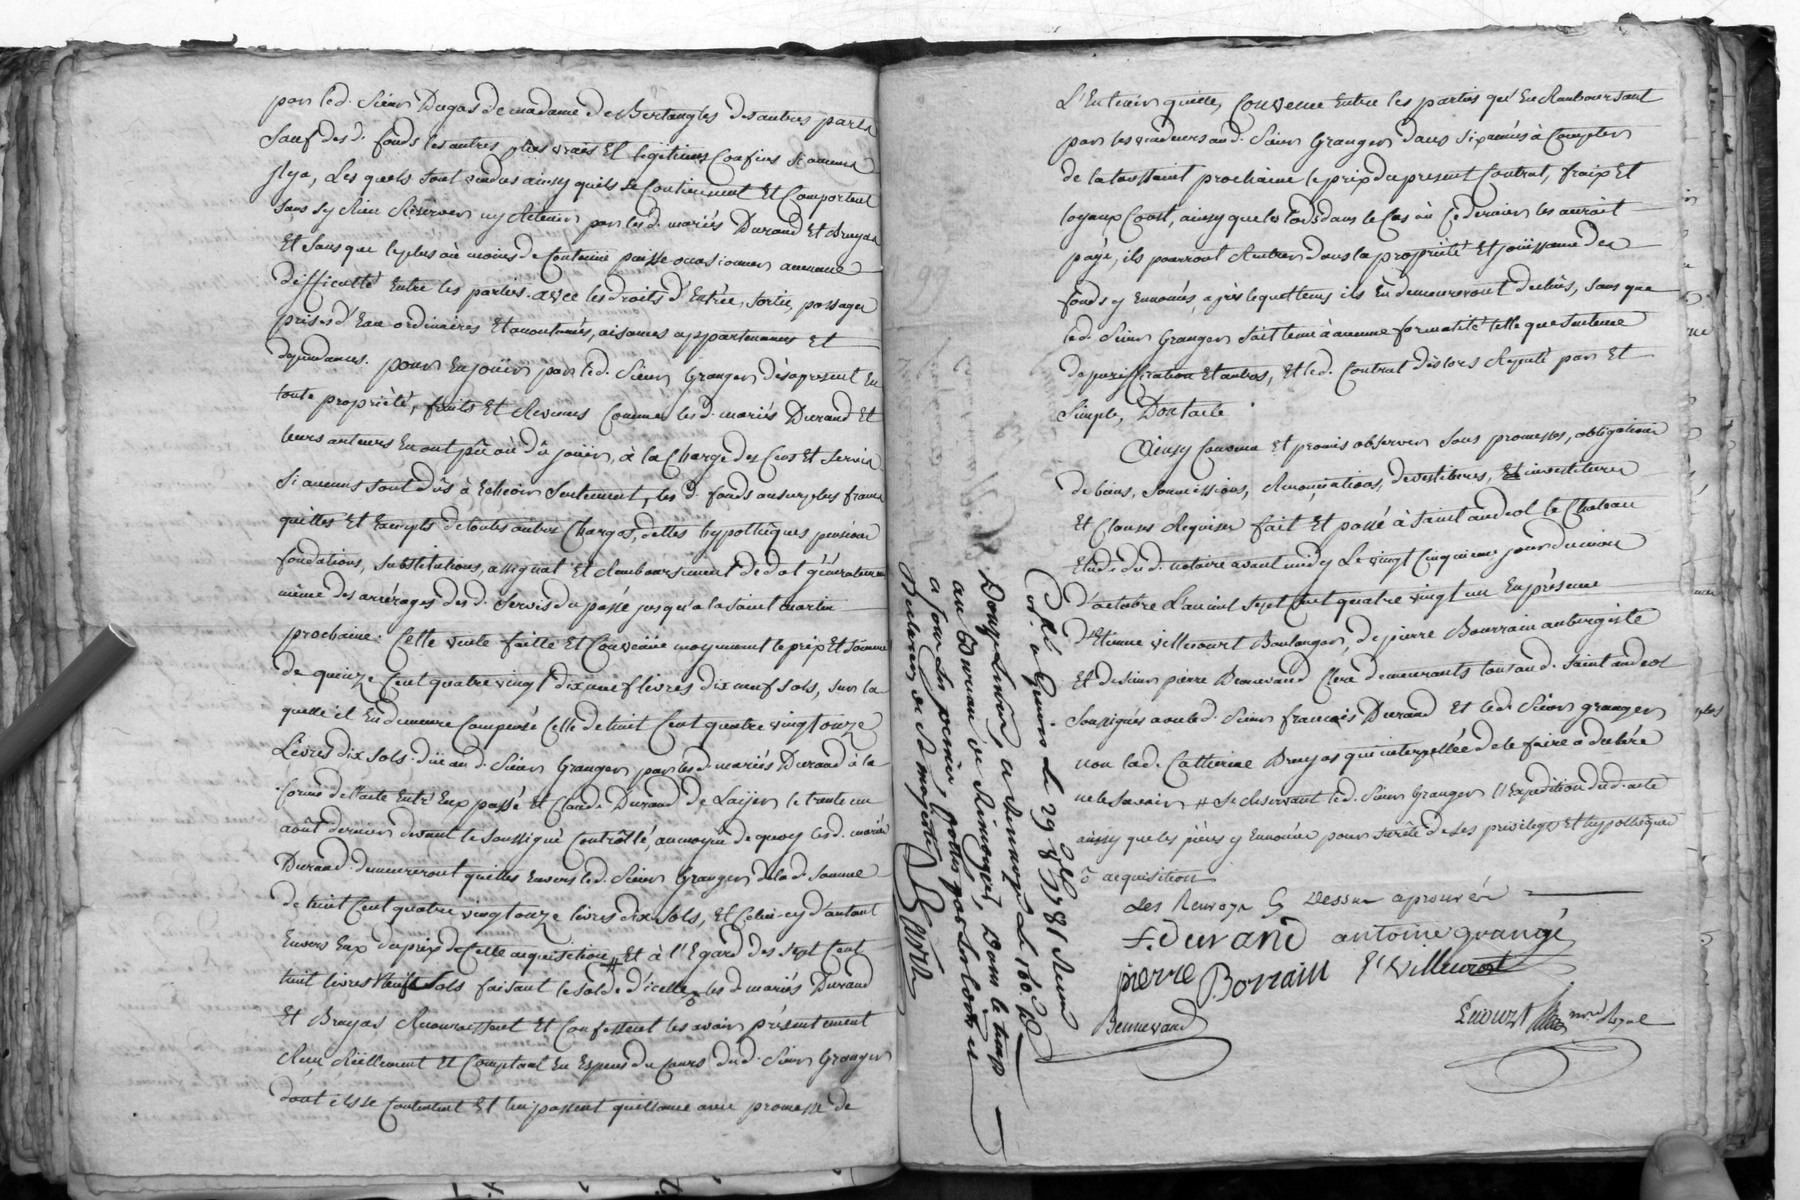 par led. Sieur Dugas de madame de Bertangles des autres parts
Sauf desd. fonds les autres plus vrais Et legitimes Confins Si aucuns
Il y a, Les quels sont vendus ainsy quils se Contiennent Et Comportent
sans sy Rien Réserver ny Retenir par lesd. mariés Durand Et Bruyas
Et sans que le plus ou moins de Contenue puisse occasionner aucune
difficulté Entre les parties. avec les droits d'Entrée, sortie, passages
prises d'Eau ordinaires Et accoutumés, aisances appartenances Et
dependances. pour En joüir par led. Sieur Granger dès a present En
toute propriété, fruits Et Revenus Comme lesd. mariés Durand Et
leurs auteurs En ont pû ou dû joüir, à la Charge des Cens Et Servis
Si aucuns sont dûs à Echeoir Seulement, lesd. fonds au surplus francs
quittes Et Exempts de toutes autres Charges, dettes hypothèques pensions
fondations, substitutions, assignat Et Remboursement de dot généralement
même des arrérages desd. Servis du passé jusqu'a la saint martin
prochaine. Cette vente faitte Et Convenüe moyennant le prix Et somme
de quinze Cent quatre vingt dix neuf livres dix neuf sols, sur la
quelle il En demeure Compensé Celle de huit Cent quatre vingt onze
Livres dix sols düe aud. Sieur Granger par lesd. mariés Durand à la
forme de l'acte Entr'Eux passé Et Claude Durand de Laijer le trente un
août dernier devant le Soussigné Controllé, au moyen de quoy lesd. mariés
Durand demeureront quittes Envers led. Sieur Granger de lad. somme
de huit Cent quatre vingt onze livres dix sols, Et Celui-cy d'autant
Envers Eux du prix de Cette acquisition # Et à l'Egard des sept Cent
huit livres Neuf Sols faisant le solde d'icelle lesd. mariés Durand
Et Bruyas Reconnoissent Et Confessent les avoir présentement
Reçu Réellement Et Comptant En Espèces du Cours dud. Sieur Granger
dont ils se Contentent Et lui passent quittance avec promesse de
L'En tenir quitte, Convenu Entre les parties qu'En Remboursant
par les vendeurs aud. Sieur Granger dans six années à Compter
de la toussaint prochaine le prix du present Contrat, fraix Et
loyaux Coust, ainsy que les lods dans le Cas où Ce dernier les auroit
payé, ils pourront Rentrer dans la propriété Et joüissance des
fonds y Enoncés, après lequel tems ils En demeureront dechûs, sans que
led. Sieur Granger soit tenu à aucune formalité telle que sentence
de purification Et autres, Et led. Contrat dès lors Reputé pur Et
Simple, Dont acte.
Ainsy Convenu Et promis observer sous promesses, obligations
de biens, soumissions, Renonciations, devestitures, Et investitures
Et Clauses Requises fait Et passé à Saint andeol le Chateau
Etude dud. notaire avant midy Le vingt Cinquieme jour du mois
d'octobre L'an mil sept Cent quatre vingt un En présence
d'Etienne villecourt Boulanger, de pierre Bourrain aubergiste
Et de sieur pierre Bennevand Clerc demeurants tous aud. Saint andeol
Soussignés avec led. Sieur françois Durand Et led. Sieur granger
non lad. Catherine Bruyas qui interpellée de le faire a declaré
ne le savoir # Se Reservant led. Sieur Granger l'Expedition dud. acte
ainsy que les pièces y Enoncées pour sûreté de ses privileges Et hypothèques
õ acquisition
Les Renvoys Cy Dessus aprouvés
F. Durand antoine grangé
pierre Borrain E. Villecourt
Bennevand
Enourd Nre Royal
Cont. a Givors Le 29 8bre 1781 Recu
Douze Livres a Renvoyé Le 100e D
au Bureau de Rivegier, Dans le temps
a sous les peines portées par les Loix et
Declarations de sa majesté Barre